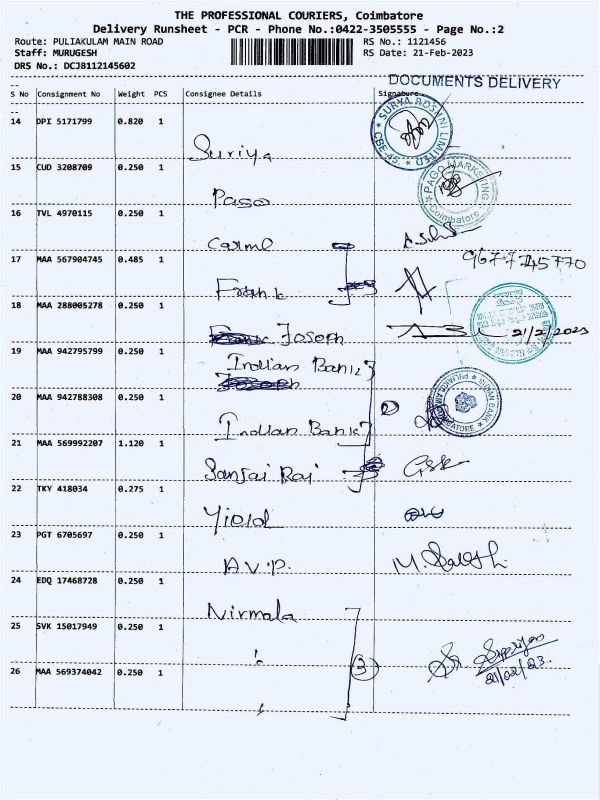 THE PROFESSIONAL COURIERS, Coimbatore
Delivery Runsheet - PCR - Phone No.:0422-3505555 - Page No.:2
Route: PULIAKULAM MAIN ROAD RS No.: 1121456
Staff: MURUGESH RS Date: 21-Feb-2023
DRS No.: DCJ8112145602
DOCUMENTS DELIVERY
S No Consignment No Weight PCS Consignee Details Signature
14 DPI 5171799 0.820 1 Suriya
SURYA ROSHNI LIMITED CBE-45.
15 CUD 3208709 0.250 1 Pago
PAGO MARKETING Coimbatore
16 TVL 4970115 0.250 1 Carmel
17 MAA 567904745 0.485 1 Frank
967-7745770
18 MAA 288005278 0.250 1 Joseph
21/2/2023
19 MAA 942795799 0.250 1 Indian Bank
20 MAA 942788308 0.250 1 Indian Bank
2
INDIAN BANK
21 MAA 569992207 1.120 1 Sanjai Raj
22 TKY 418034 0.275 1 Yield
23 PGT 6705697 0.250 1 A.V.P.
24 EDQ 17468728 0.250 1 Nirmala
25 SVK 15017949 0.250 1
3
21/02/23.
26 MAA 569374042 0.250 1